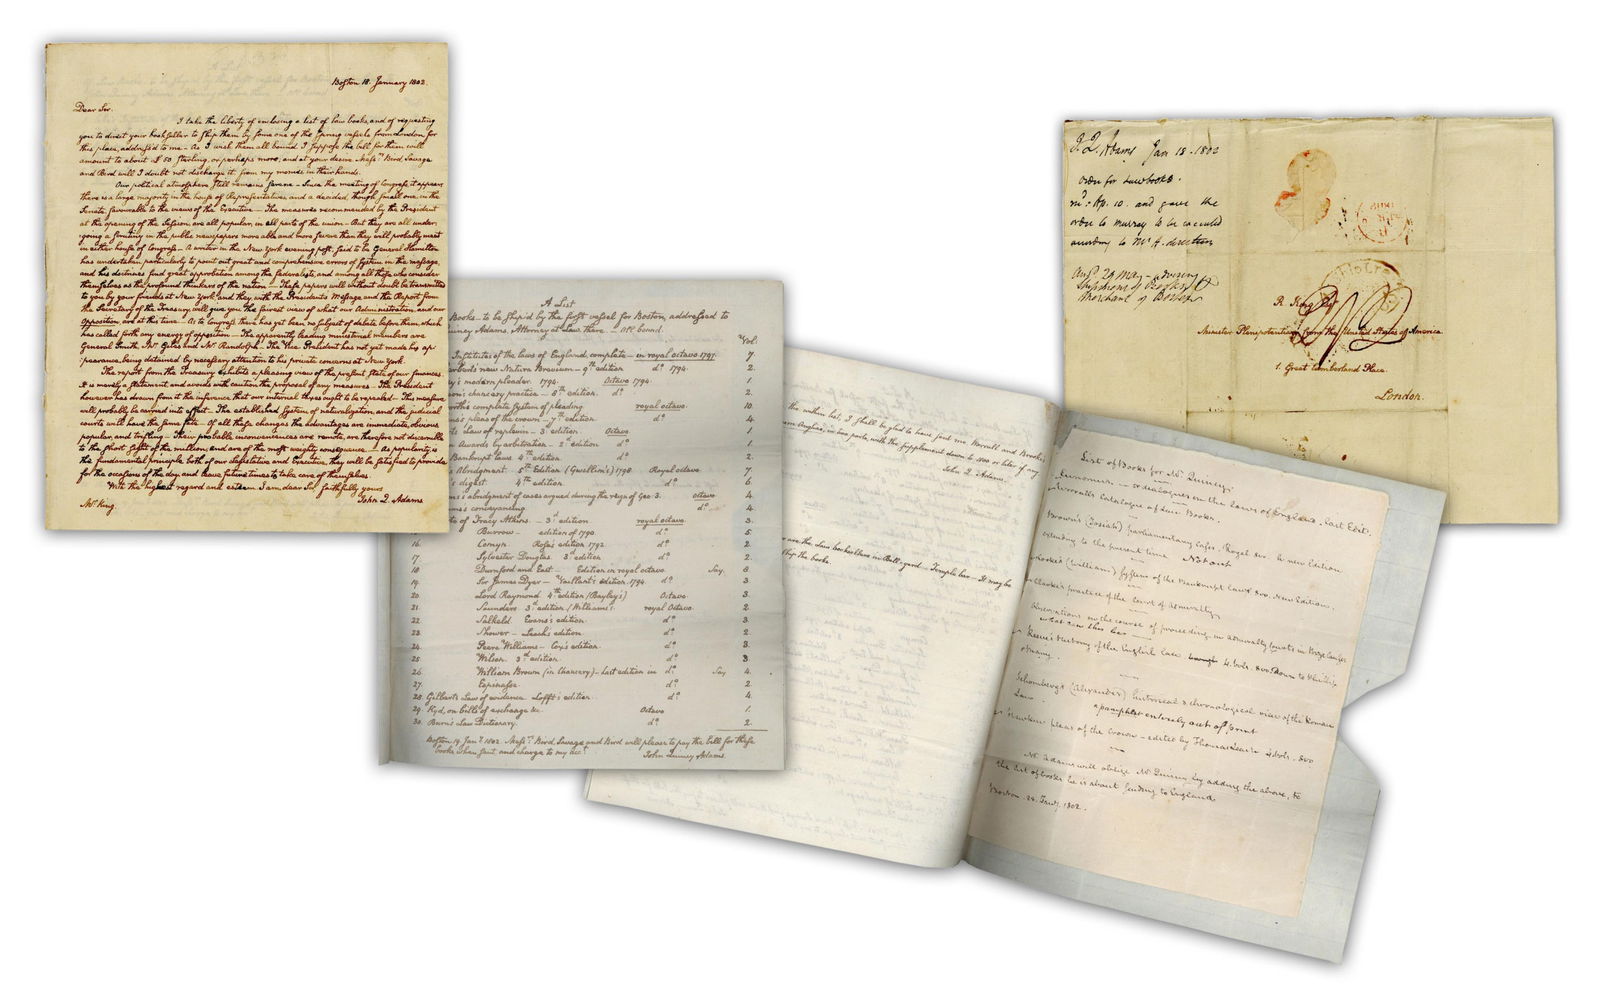 Boston 18. January 1802.
Dear Sir.
I take the liberty of enclosing a list of law books, and of requesting
you to direct your bookseller to ship them by some one of the spring vessels from London, for
this place, address'd to me - As I wish them all bound I suppose the bill for them will
amount to about £50 sterling, or perhaps more, and at your desire Mess.rs Bird, Savage
and Bird will I doubt not discharge it, from my monies in their hands.
Our political atmosphere still remains serene - Since the meeting of Congress it appears
there is a large majority in the house of Representatives, and a decided, though small one in the
Senate, favourable to the views of the Executive - The measures recommended by the President
at the opening of the Session, are all popular, in all parts of the union - But they are all under-
going a scrutiny in the public newspapers more able and more severe than they will probably meet
in either house of Congress - A writer in the New York evening post, said to be General Hamilton
has undertaken particularly to point out great and comprehensive errors of system in the message,
and his doctrines find great approbation among the federalists, and among all those who consider
themselves as the profound thinkers of the nation - These papers will without doubt be transmitted
to you by your friends at New York, and they, with the President's Message and the Report from
the Secretary of the Treasury, will give you the fairest view of what our Administration, and our
Opposition, are at this time - As to Congress there has yet been no subject of debate before them, which
has called forth any energy of opposition - The apparently leading ministerial members are
General Smith, Mr. Giles and Mr. Randolph. The Vice President has not yet made his ap-
pearance, being detained by necessary attention to his private concerns at New York.
The report from the Treasury exhibits a pleasing view of the present state of our finances.
It is merely a statement, and avoids with caution the proposal of any measures - The President
however has drawn from it the inference that our internal taxes ought to be repealed - This measure
will probably be carried into effect - The established system of naturalization, and the judicial
courts will have the same fate - Of all these changes the advantages are immediate, obvious
popular, and trifling - Their probable inconveniences are remote, are therefore not discernible
to the short sight of the million, and are of the most weighty consequence - As popularity is
the fundamental principle both of our Legislature and Executive, they will be satisfied to provide
for the occasions of the day and leave future times to take care of themselves.
With the highest regard and esteem I am, dear Sir, faithfully yours
John Q. Adams
Mr. King.
A List
Books - to be ship'd by the first vessel for Boston, addressed to
Quincy Adams, Attorney at Law there - All bound.
Vol:
Institutes of the laws of England, complete - in royal octavo 1797. 7
new Natura Brevium - 9th edition do 1794. 2.
modern pleader. 1794. Octavo 1794. 1
chancery practice - 8th edition. do 2.
complete system of pleading royal octavo. 10.
pleas of the crown - 7th edition do 4
Law of replevin - 3d edition Octavo 1
Awards by arbitration - 2d edition do 1
Bankrupt laws 4th edition do 2
Abridgment. 5th Edition (Gwillim's) 1798 Royal octavo 7
digest. 4th edition 6
abridgment of cases argued during the reign of Geo: 3. octavo 4
conveyancing do 4
of Tracy Atkins. - 3d edition royal octavo. 3.
Burrow - edition of 1790. do 5
16. Comyn. Rose's edition 1792. do 2.
17. Sylvester Douglas. 3d edition do 2
18 Durnford and East - Edition in royal octavo Say, 8
19. Sir James Dyer - Vaillant's edition. 1794. do 3.
20. Lord Raymond 4th edition (Bayley's) Octavo. 3.
21. Saunders 3d edition (Williams's) royal Octavo. 2
22. Salkeld. Evans's edition. do 3
23. Shower - Leach's edition do 2
24. Peere Williams - Cox's edition do 3
25 Wilson. 3d edition do 3
26. William Brown (in Chancery) - Last edition in do Say 4
27. Espinasse do 2
28. Gilbert's Law of evidence Lofft's edition do 4
29. Kyd, on bills of exchange &c Octavo 1.
30. Burn's Law Dictionary. do 2.
Boston 19 Jany 1802. Messrs Bird, Savage and Bird will please to pay the bill for these
books when sent, and charge to my acct
John Quincy Adams.
the within list, I shall be glad to have sent me Worrall and Brooke's
Angliæ, in two parts, with the supplement down to 1800 or later if any
John Q. Adams.
are the Law booksellers in Bell-yard - Temple bar - It may be
ship the books.
List of Books for Mr. Quincy.
Eunomus - or dialogues on the Laws of England, last Edit.
Worralls Catalogue of Law Books.
Brown's (Josiah) parliamentary cases, Royal 8vo. a new Edition
extending to the present time Not out
Cooke's (William) system of the Bankrupt Laws 8vo. New Edition.
Clarke's practice of the Court of Admiralty
Observations on the course of proceeding in Admiralty Courts in Prize Causes
Reeve's History of the English Law 4 Vols. 8vo Down to Phillip
& Mary.
Schomberg's (Alexander) historical & chronological view of the Roman
Law
a pamphlet entirely out of print
Hawkins pleas of the Crown - edited by Thomas Leach 4 Vols. 8vo
Mr Adams will oblige Mr Quincy by adding the above, to
the list of books he is about sending to England
Boston 28. Jany. 1802.
J. Q. Adams Jan 18. 1802
order for Law books.
rd. Ap. 10. and gave the
order to Murray to be executed
according to Mr A. direction
Ansd 29 May - advising
Shipment of Books
Merchant of Boston
R. King Esqr
Minister Plenipotentiary from the United States of America
1. Great Cumberland Place.
London.